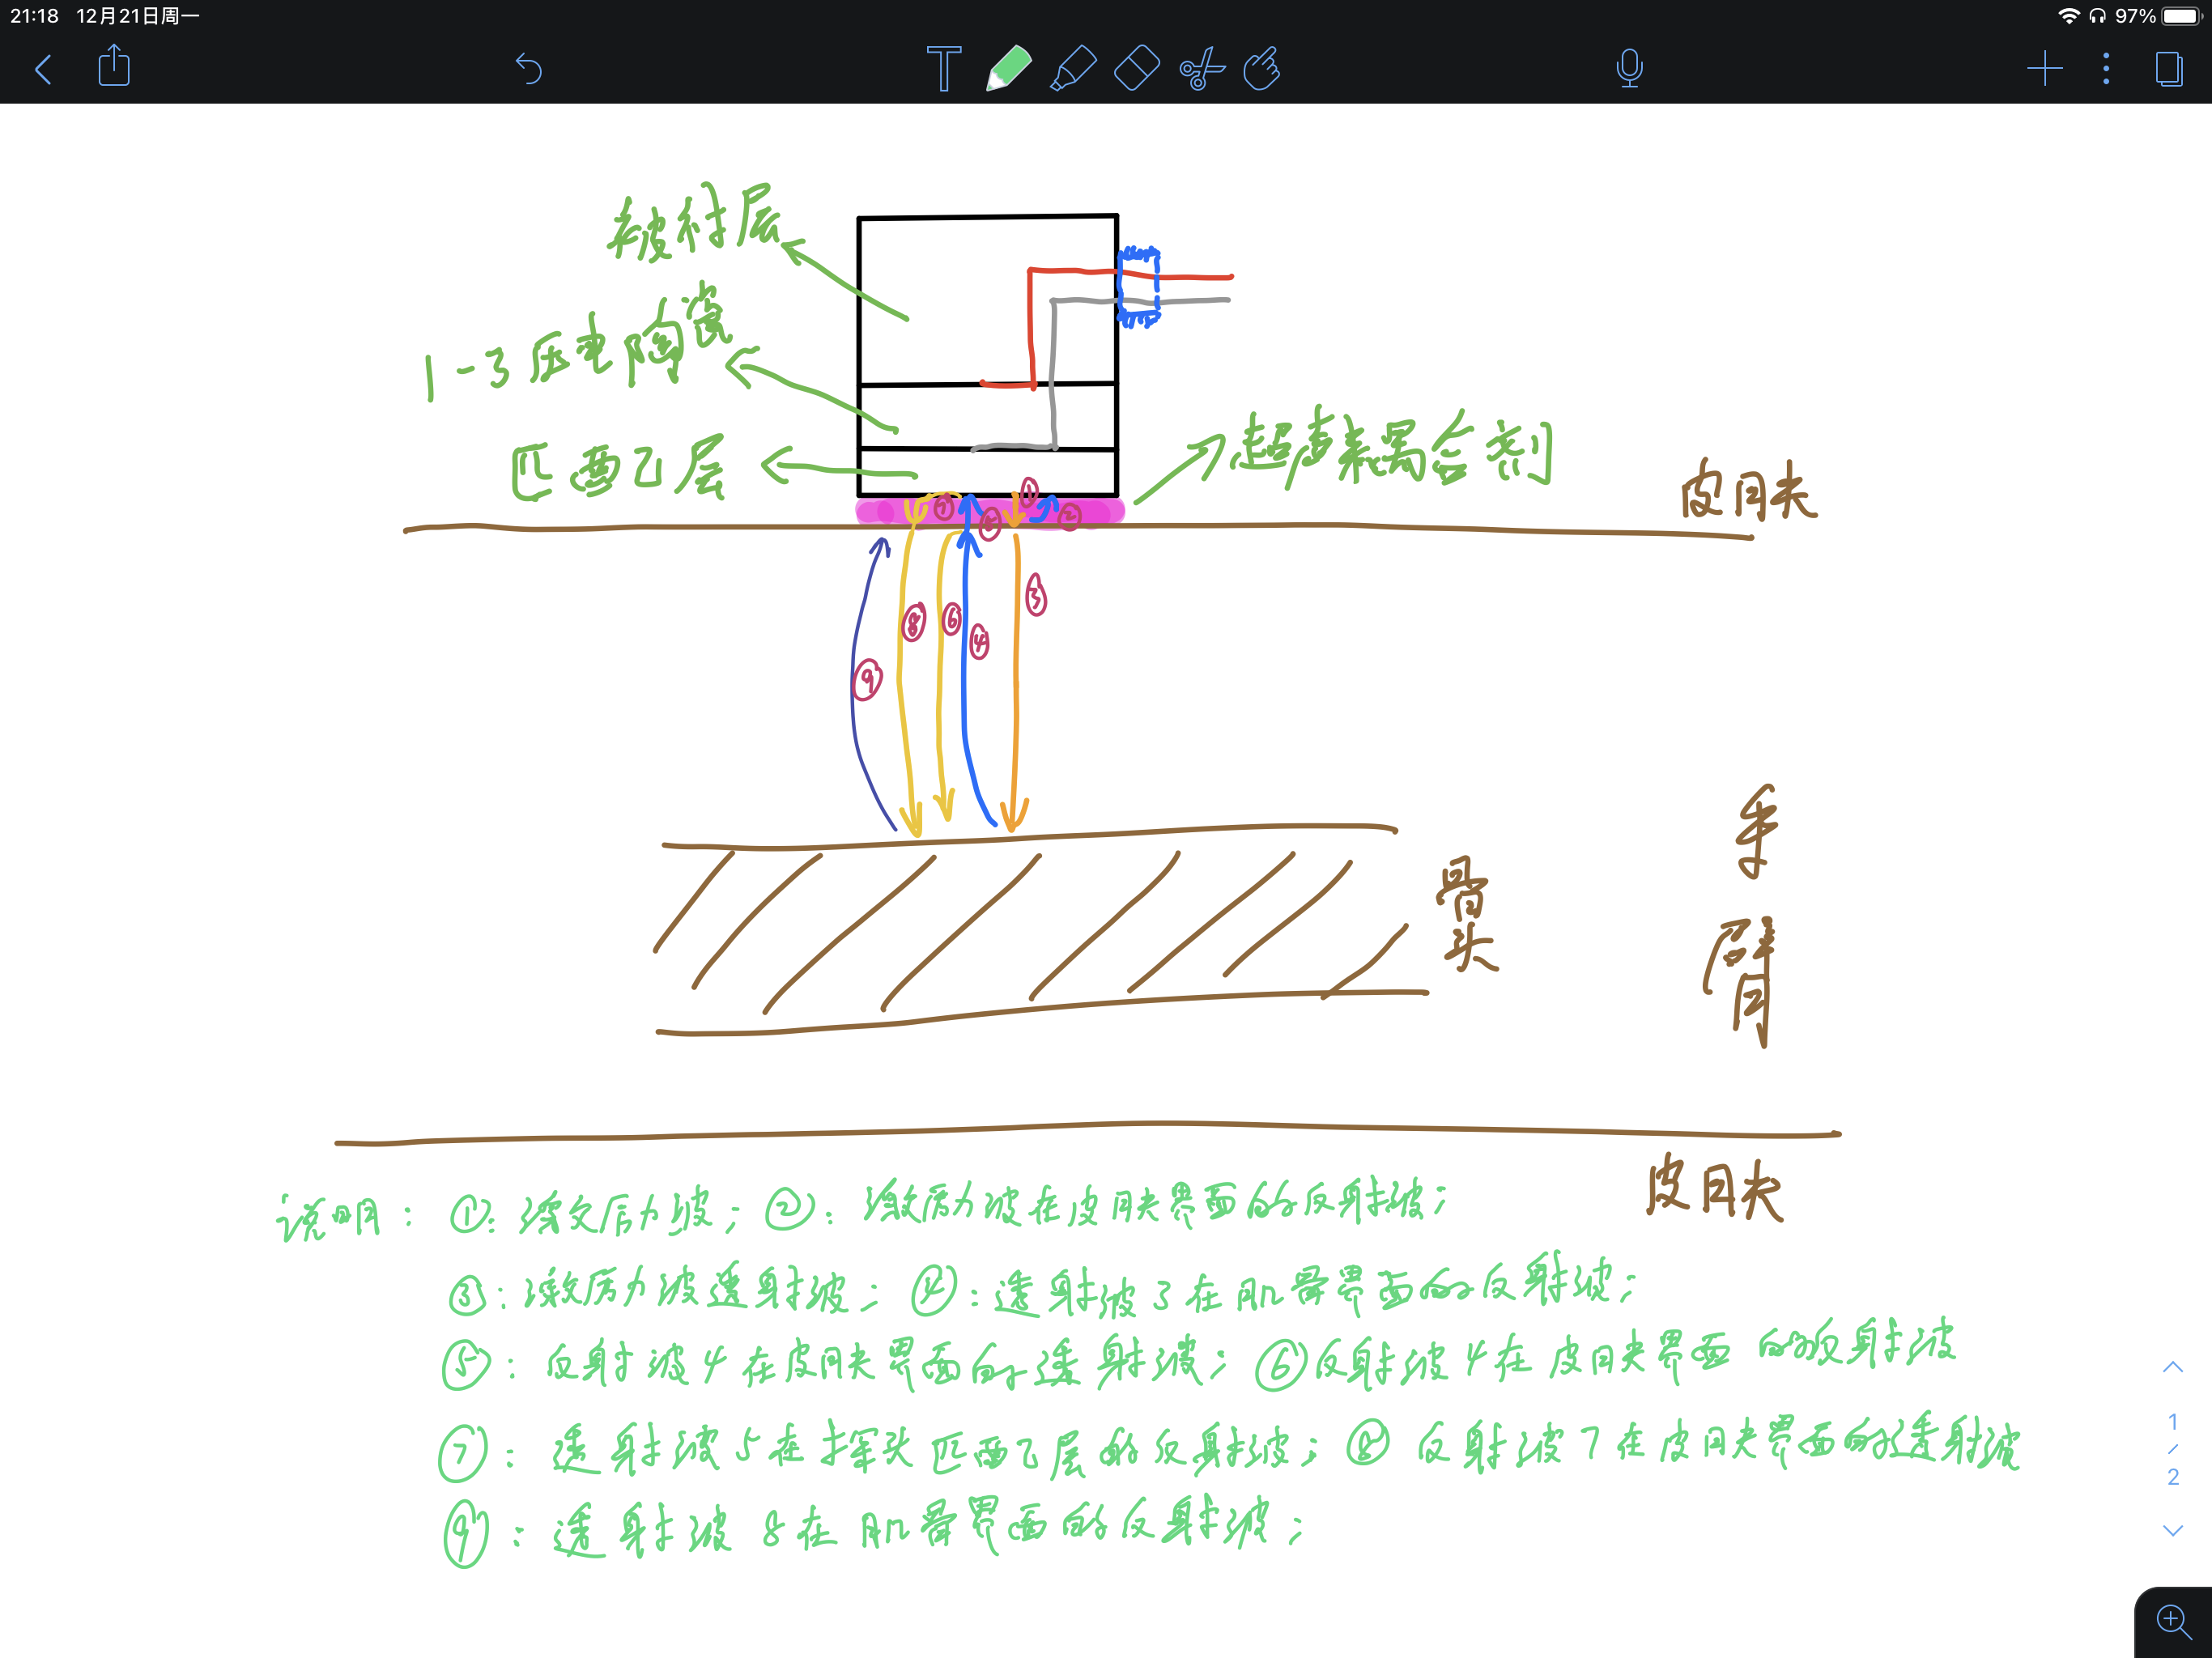 21:18 12月21日周一
97%
T
被衬层
1-3压电陶瓷
匹配层
超声耦合剂
皮肤
①
⑦
⑤
②
③
⑧
⑥
④
⑨
手臂
骨头
皮肤
说明：①：激发后力波；②：激发后力波在皮肤界面的反射波；
③：激发后力波透射波；④：透射波3在肌骨界面的反射波；
⑤：反射波4在皮肤界面的透射波；⑥反射波4在皮肤界面的反射波
⑦：透射波5在探头匹配层的反射波；⑧反射波7在皮肤界面的透射波
⑨：透射波8在肌骨界面的反射波；
1
2